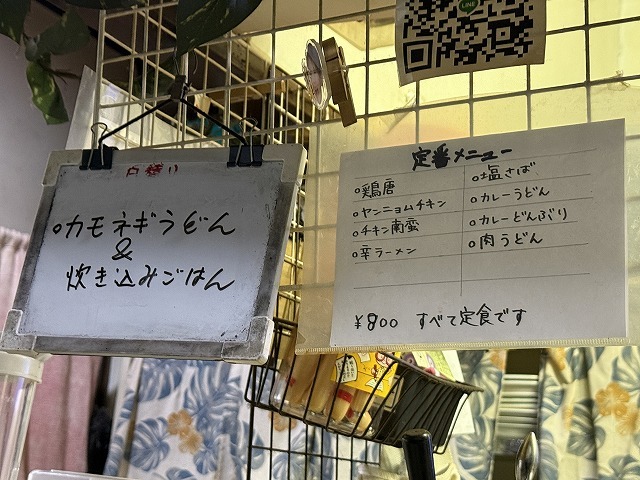 LINE
日替り
○カモネギうどん
&
炊き込みごはん
定番メニュー
○鶏唐
○ヤンニョムチキン
○チキン南蛮
○辛ラーメン
○塩さば
○カレーうどん
○カレーどんぶり
○肉うどん
¥800 すべて定食です